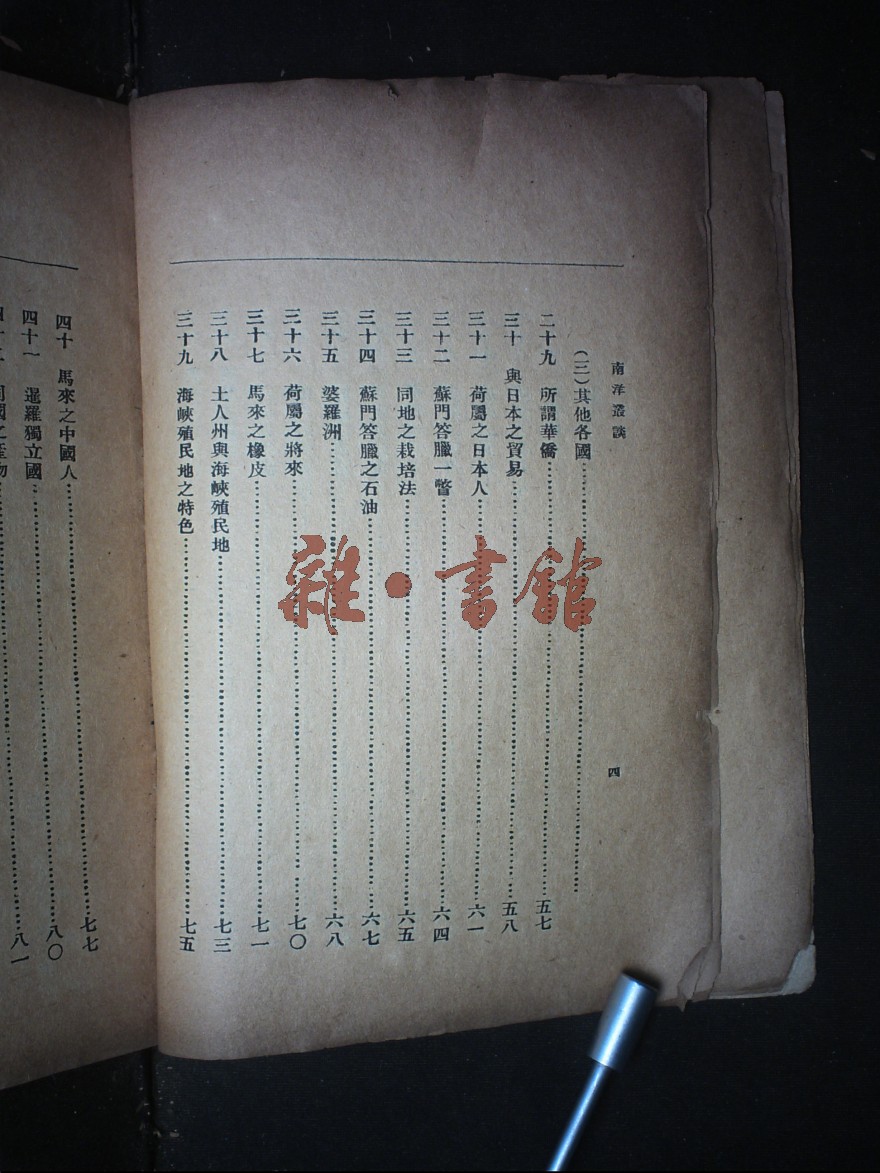 南洋叢談
四
（三）其他各國
二十九 所謂華僑 五七
三十 與日本之貿易 五八
三十一 荷屬之日本人 六一
三十二 蘇門答臘一瞥 六四
三十三 同地之栽培法 六五
三十四 蘇門答臘之石油 六七
三十五 婆羅洲 六八
三十六 荷屬之將來 七〇
三十七 馬來之橡皮 七一
三十八 土人州與海峽殖民地 七三
三十九 海峽殖民地之特色 七五
四十 馬來之中國人 七七
四十一 暹羅獨立國 八〇
八一
雜·書館